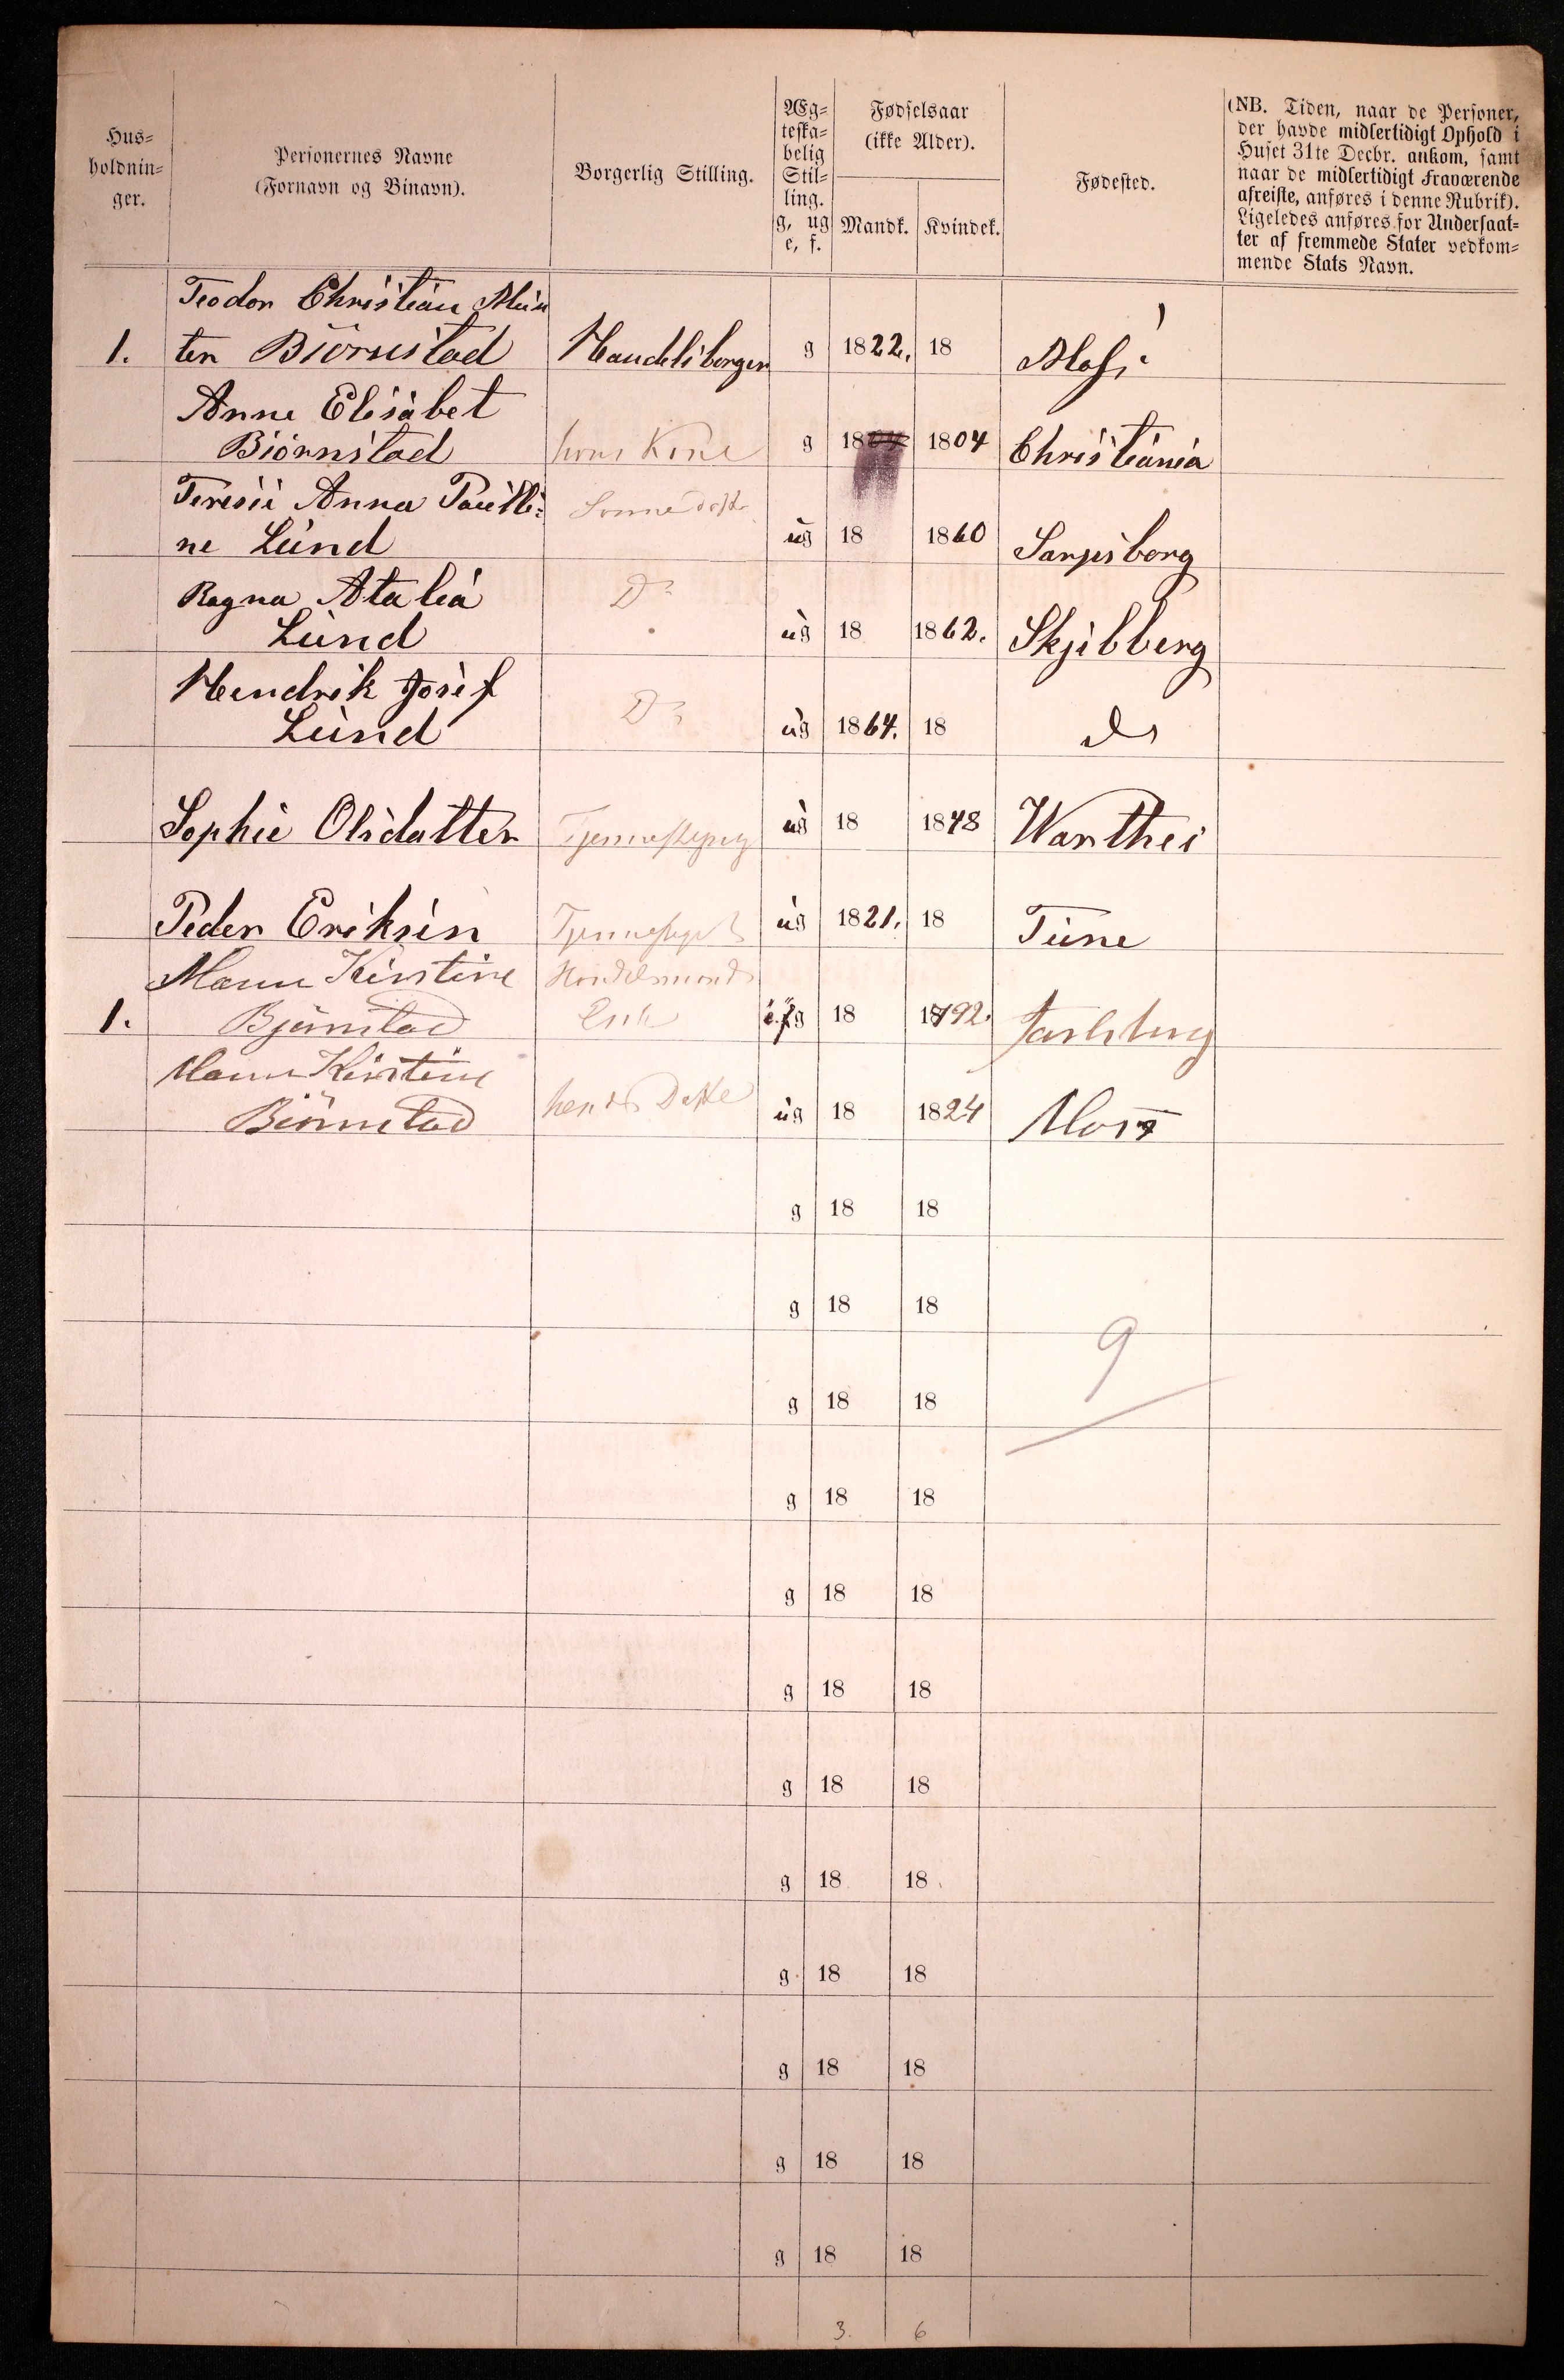 Hus=
holdnin=
ger.
Personernes Navne
(Fornavn og Binavn).
Borgerlig Stilling.
Æg=
teska=
belig
Stil=
ling.
g, ug
e, f.
Fødselsaar
(ikke Alder).
Mandk. Kvindek.
Fødested.
(NB. Tiden, naar de Personer,
der havde midlertidigt Ophold i
Huset 31te Decbr. ankom, samt
naar de midlertidigt Fraværende
afreiste, anføres i denne Rubrik).
Ligeledes anføres for Undersaat=
ter af fremmede Stater vedkom=
mende Stats Navn.
Teodor Christian Mün
1. ter Biørnstad Handelsborger g 1822. 18 Moss
Anne Elisabet
Biørnstad hans Kone g 18 1804 Christiania
Teresie Anna Paüli=
ne Lünd Sønnedatter üg 18 1860 Sarpsborg
Ragna Atalia
Lünd Do üg 18 1862. Skjibberg
Hendrik Josef
Lünd Do üg 1864. 18 Do
Sophie Olsdatter Tjenestepige üg 18 1848 Warthei
Peder Eriksen üg 1821. 18 Tüne
Maren Kirstine Handelsmands
1. Bjørnstad Enke 18 1792. Jarlsberg
Maren Kirstine
Biørnstad hendes Datter üg 18 1824 Moss
g 18 18
g 18 18
9
g 18 18
g 18 18
g 18 18
g 18 18
g 18 18
g 18 18
g 18 18
g 18 18
g 18 18
g 18 18
3. 6